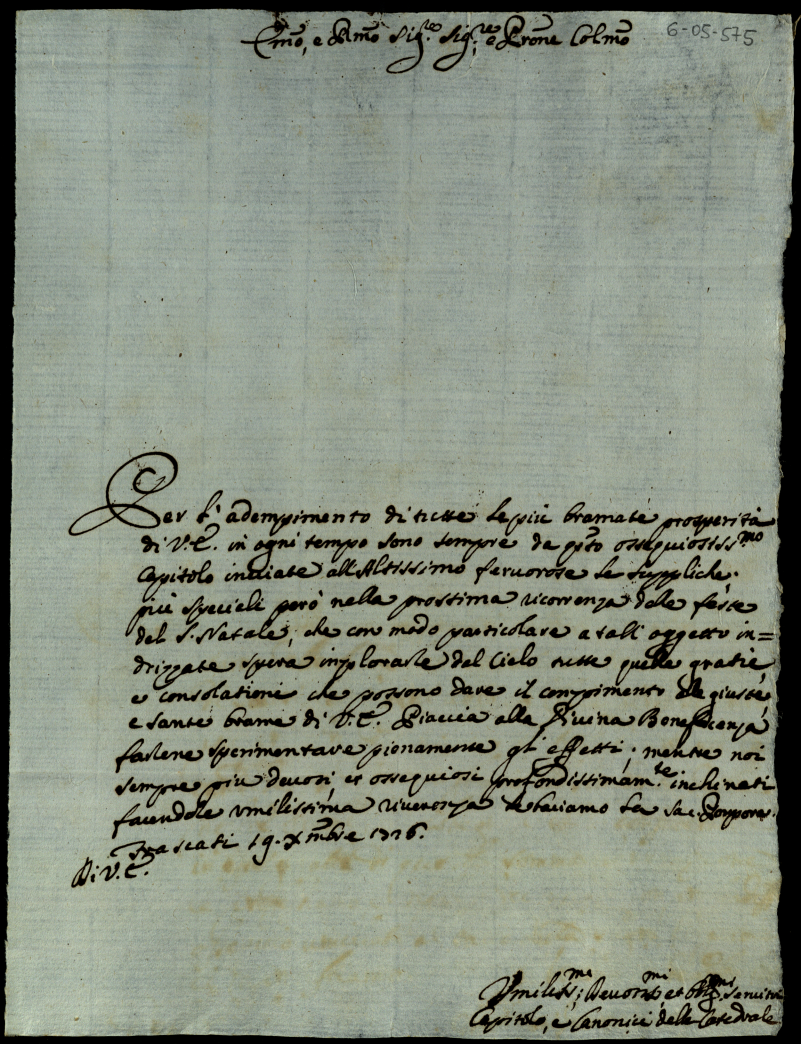 6-05-575
Emo, e Rmo Sig.re Sig.re e Prone Colmo
Per l'adempimento di tutte le più bramate prosperità
di V.E. in ogni tempo sono sempre da qsto ossequiosiss.mo
Capitolo inviate all'Altissimo fervorose le suppliche;
più speciali però nella prossima ricorrenza delle feste
del S. Natale, che con modo particolare a tall'oggetto in=
drizzate spera implorarle dal Cielo tutte quelle gratie,
e consolationi che possono dare il compimento alle giuste,
e sante brame di V.E. Piaccia alla Divina Beneficenza
farlene sperimentare pienamente gl'effetti; mentre noi
sempre più devoti et ossequiosi profondissimam.te inchinati
facendole umilissima riverenza le baciamo la Sac. Porpora.
Frascati 19. Xmbre 1726.
Di V.E.
Umiliss.mi Devotis.mi et Obg.mi Servitori
Capitolo, e Canonici della Catedrale